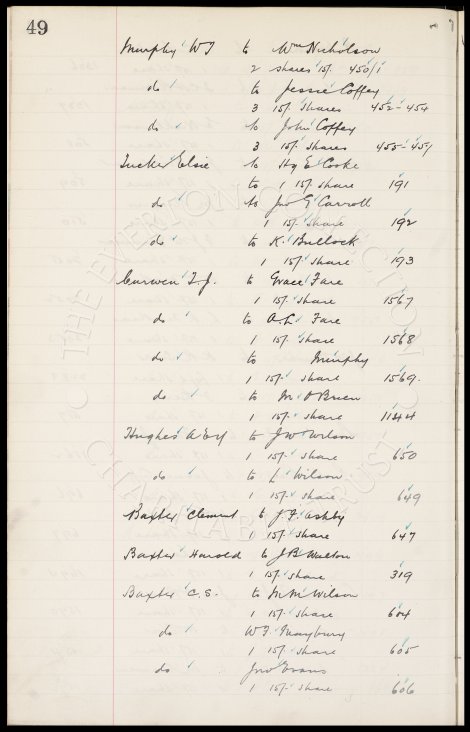 49
Murphy W J to Wm Nicholson
2 shares 15/- 450/1
do to Jessie Coffey
3 15/- shares 452-454
do to John Coffey
3 15/- shares 455-457
Tucker Elsie to Hy E Cooke
to 1 15/- share 191
do to Jno G Carroll
1 15/- share 192
do to K. Bullock
1 15/- share 193
Curwen T. J. to Grace Fare
1 15/- share 1567
do to A.L. Fare
1 15/- share 1568
do to Murphy
1 15/- share 1569.
do to M O'Brien
1 15/- share 1144
Hughes A E to J W Wilson
1 15/- share 650
do to L Wilson
1 15/- share 649
Baxter Clement to J. F. Ashby
1 15/- share 647
Baxter Harold to J B Walton
1 15/- share 319
Baxter C. E. to M M Wilson
1 15/- share 604
do W J Maybury
1 15/- share 605
do Jno Evans
1 15/- share 606
THE EVERTON COLLECTION
CHARITABLE TRUST